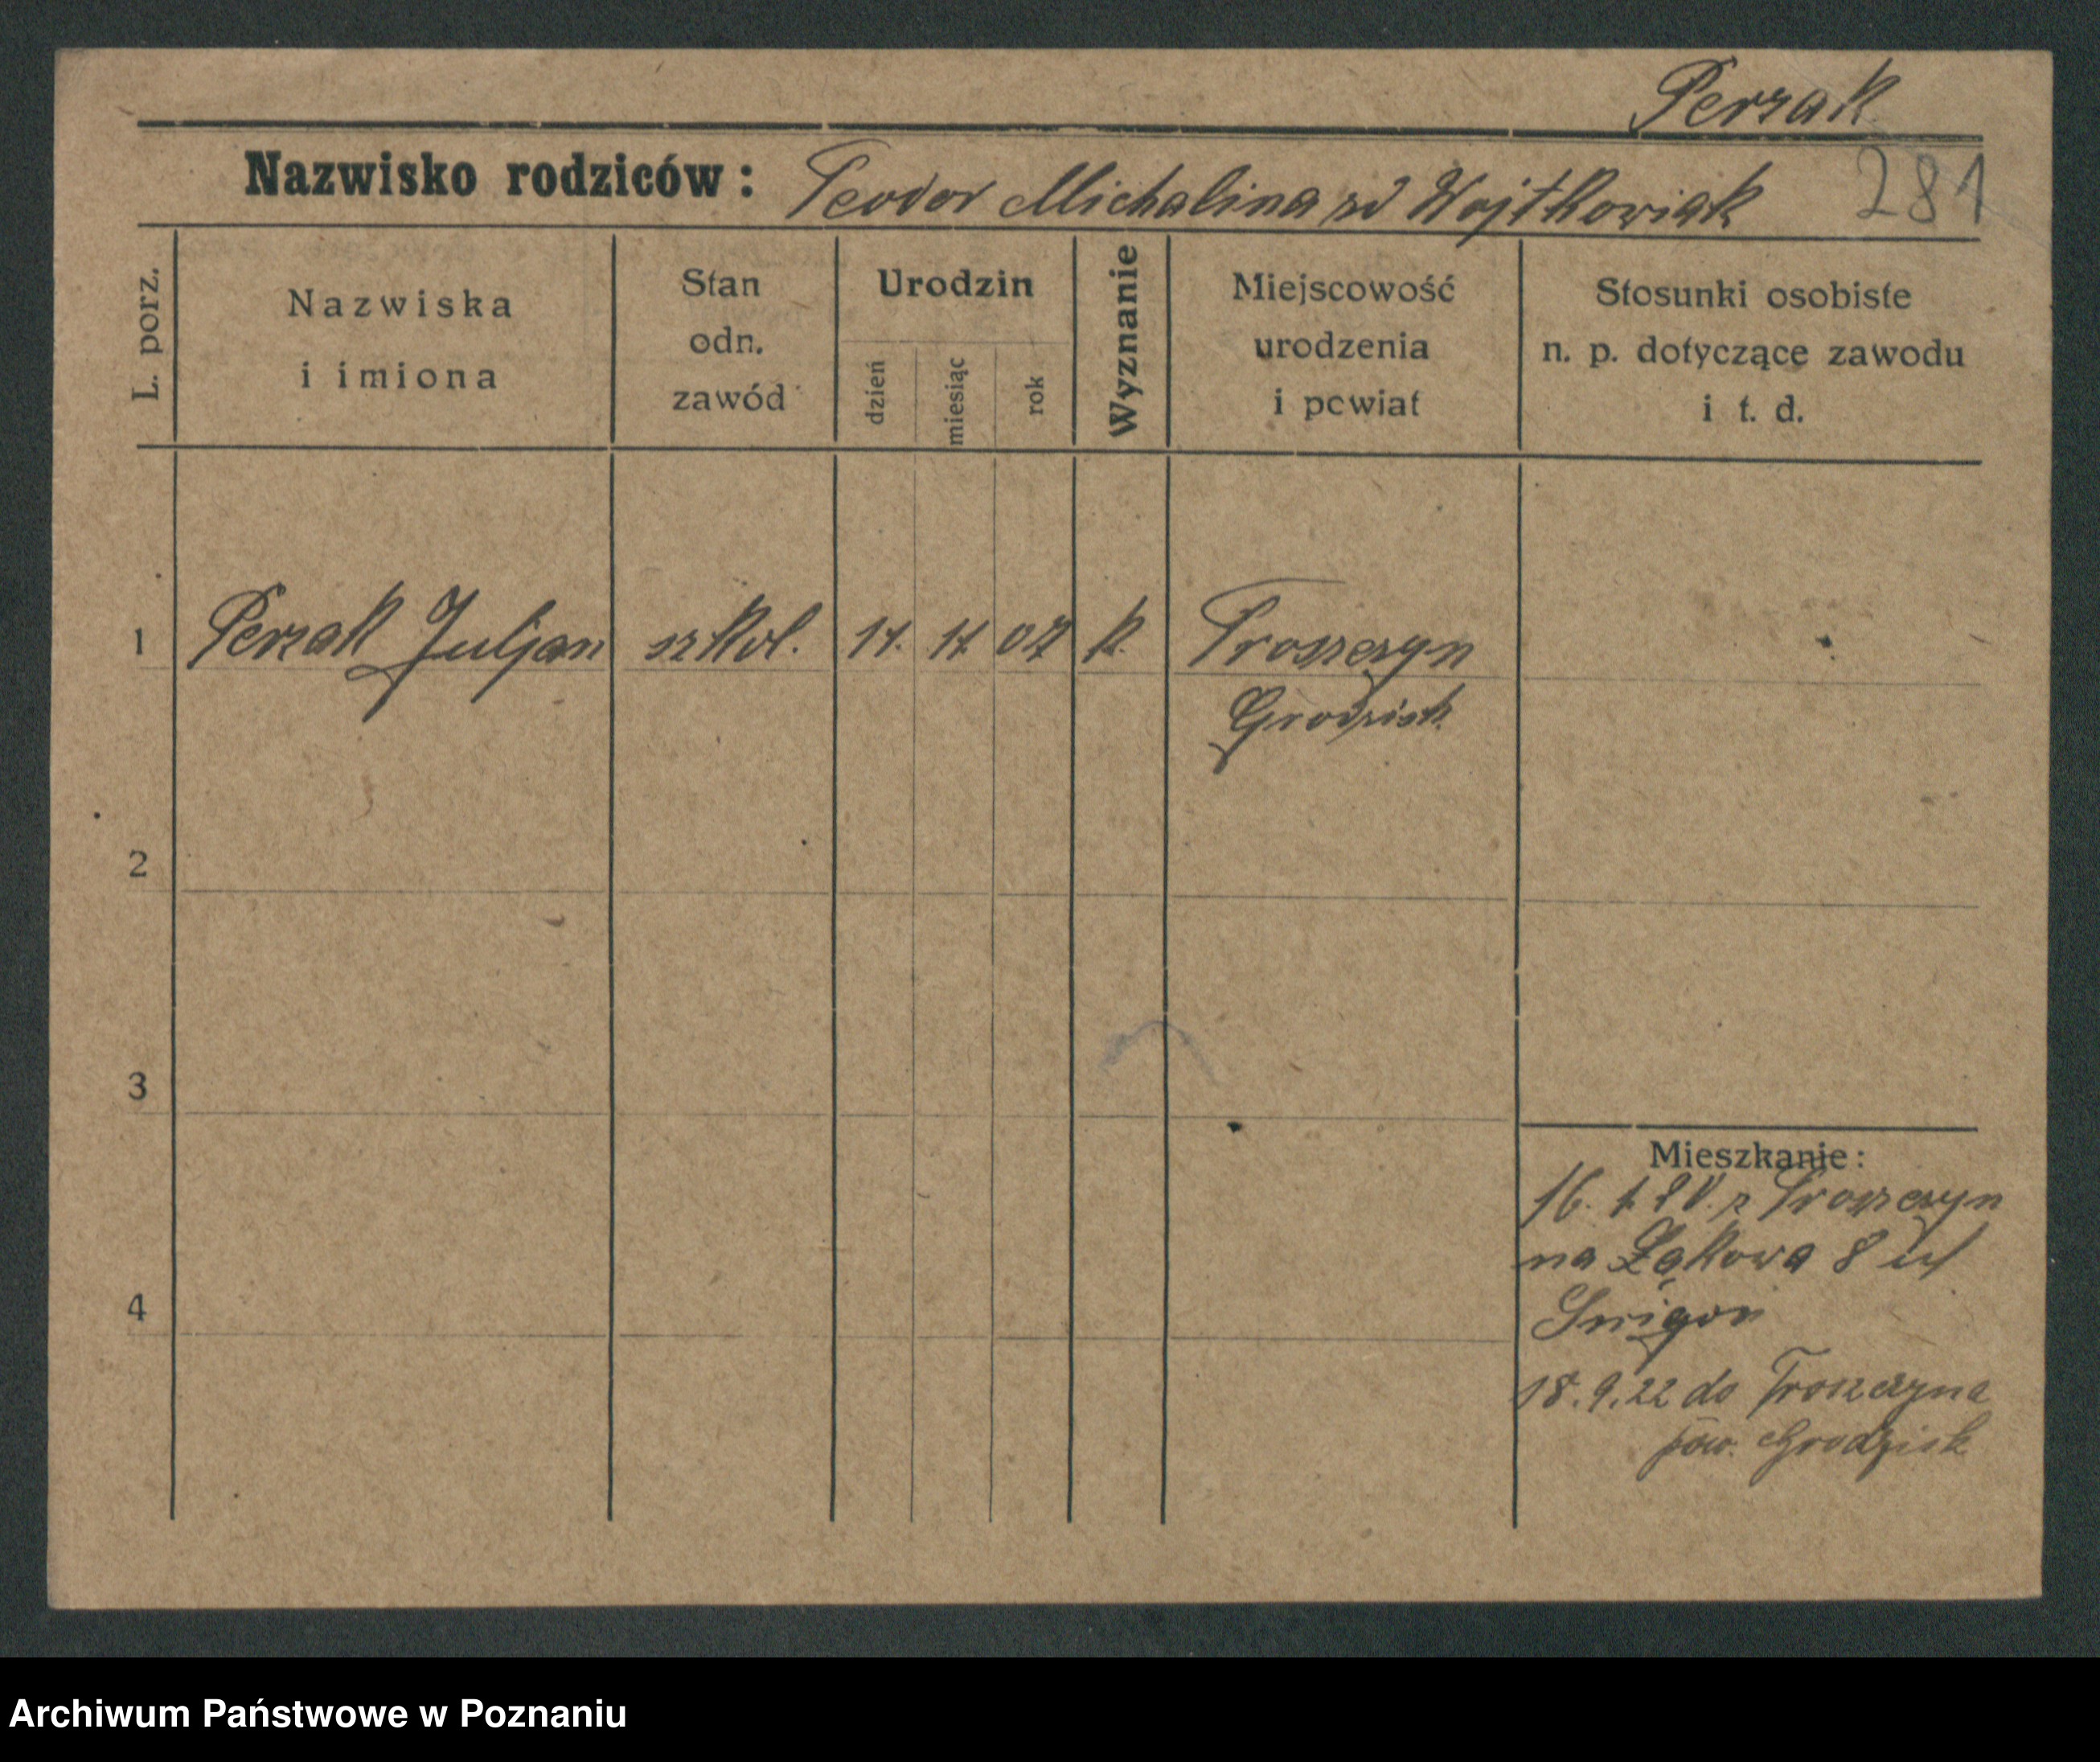 Perzak
Nazwisko rodziców: Teodor Michalina zd Wojtkowiak 281
L. porz.
Nazwiska
i imiona
Stan
odn.
zawód
Urodzin
dzień
miesiąc
rok
Wyznanie
Miejscowość
urodzenia
i powiat
Stosunki osobiste
n. p. dotyczące zawodu
i t. d.
1 Perzak Juljan szkol. 11. 11 07 k. Troszczyn
Grodzisk
2
3
4
Mieszkanie:
16. z Troszczyn
na Łąkowa 8
18.9.22 do Troszczyna
pow. Grodzisk
Archiwum Państwowe w Poznaniu